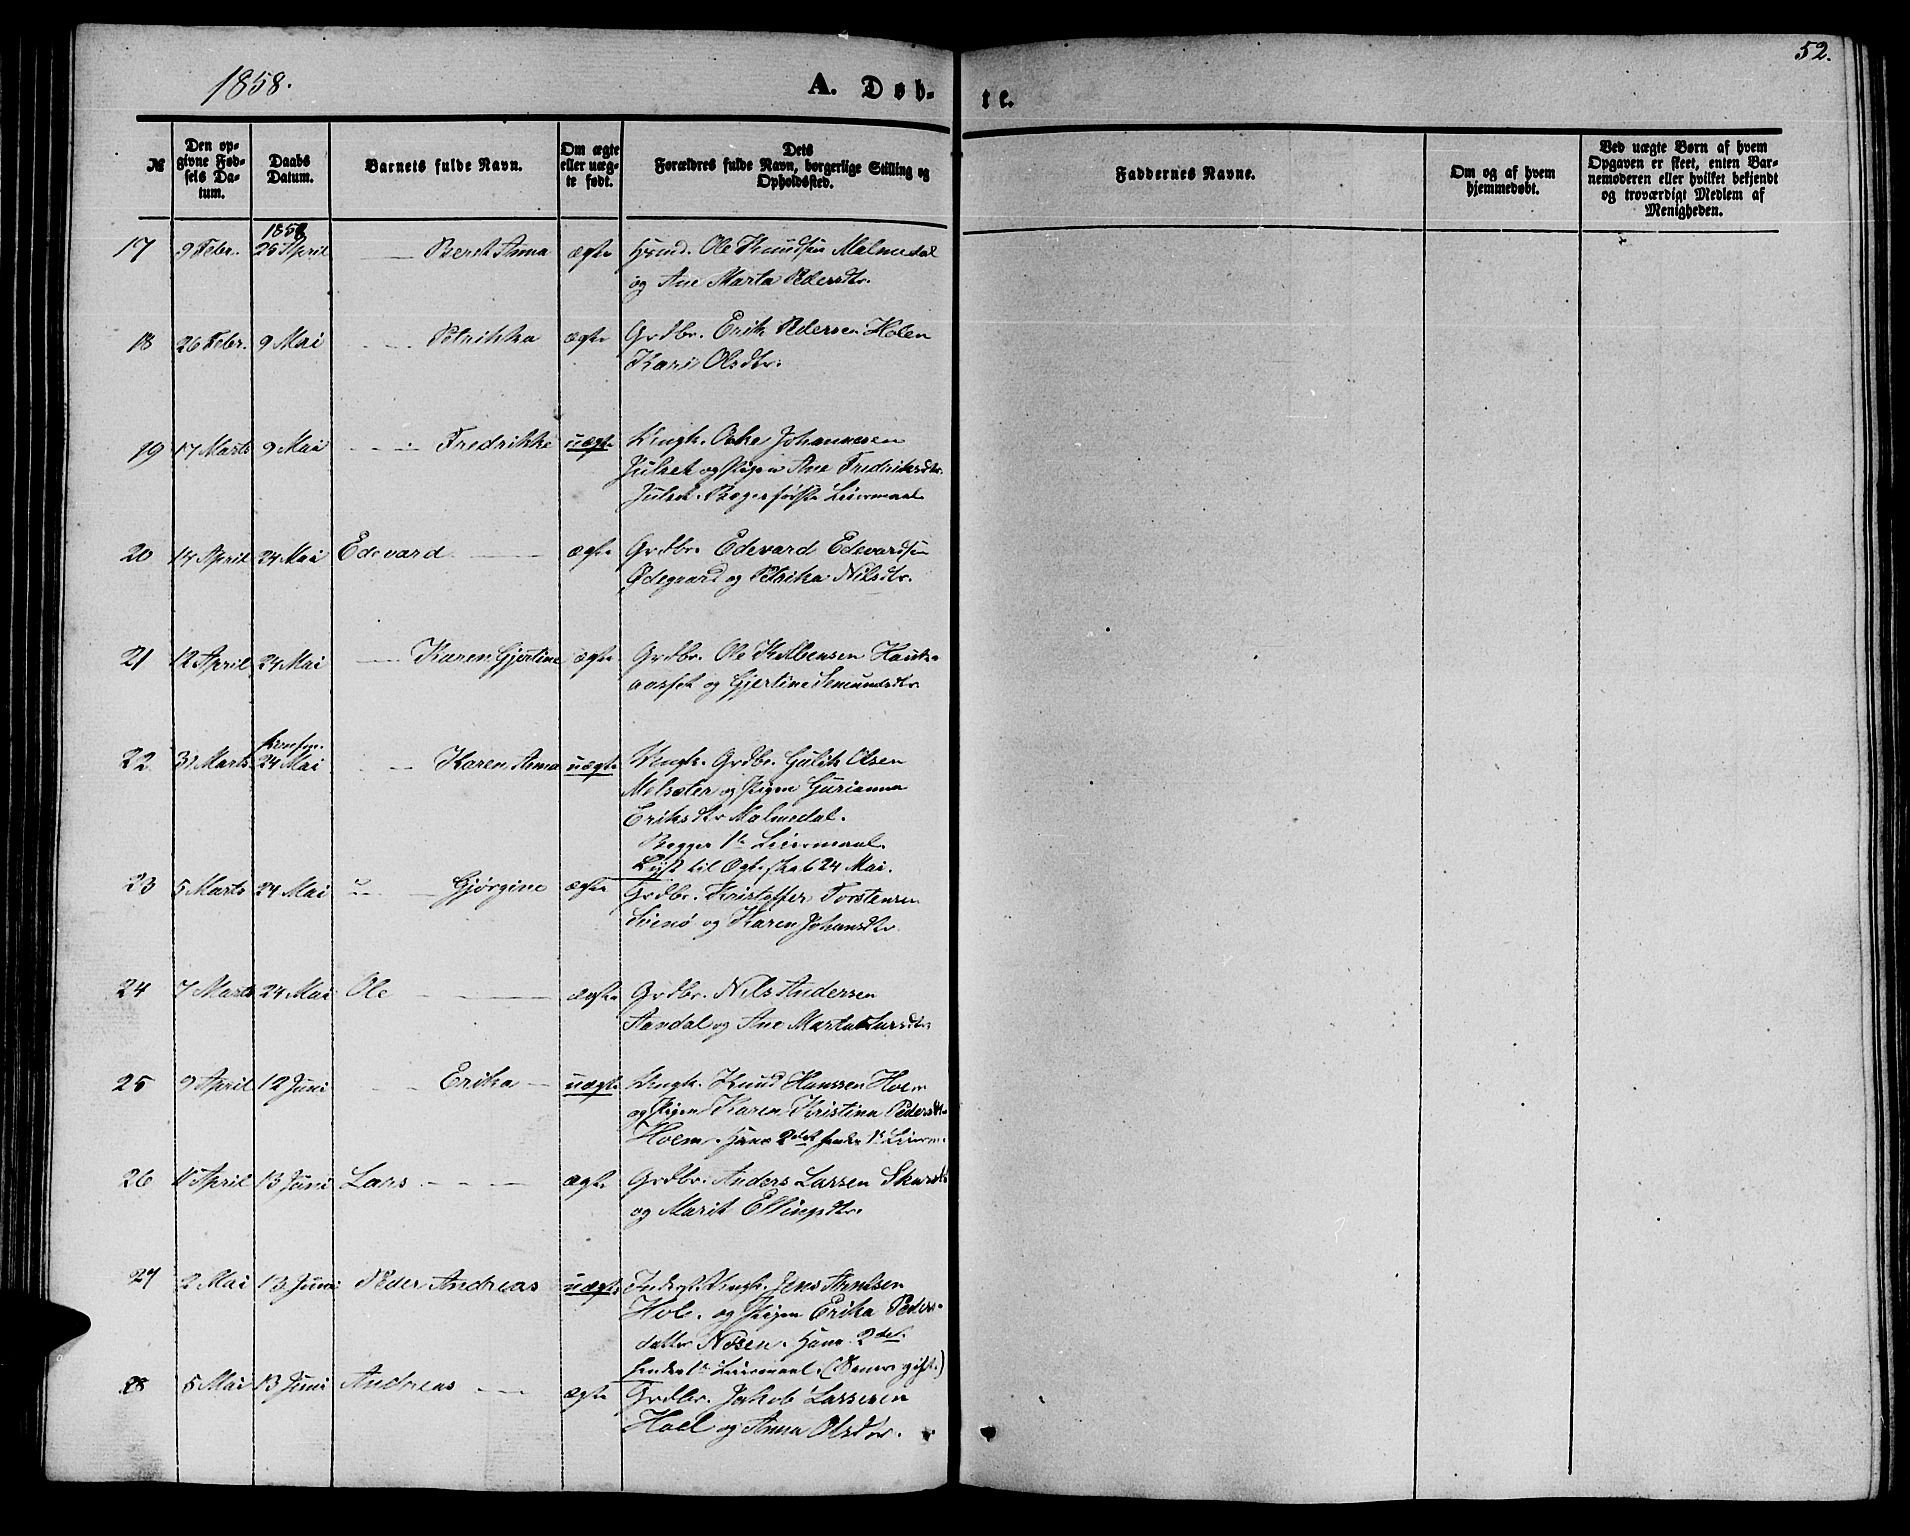 1858.
A. Døb-
te.
52.
№
Den op-
givne Fød-
sels Da-
tum.
Daabs
Datum.
Barnets fulde Navn.
Om ægte
eller uæg-
te født.
Dets
Forældres fulde Navn, borgerlige Stilling og
Opholdssted.
Faddernes Navne.
Om og af hvem
hjemmedøbt.
Ved uægte Børn af hvem
Opgaven er skeet, enten Bar-
nemoderen eller hvilket bekjendt
og troværdigt Medlem af
Menigheden.
1858
17 9 Febr. 25 April Beret Anna ægte Huusd. Ole Knudsen Malmedal
og Ane Marta Pedersdtr.
18 26 Febr. 9 Mai Petrikka ægte Grdbr. Erik Pedersen Holen
Kari Olsdtr.
19 17 Marts 9 Mai Fredrikke uægte Ungk. Johannesen
Julset og Pigen Ane Fredriksdtr.
Julset. Begges første Leiermaal
20 14 April 24 Mai Edevard ægte Grdbr. Edevard Edevardsen
Ødegaard og Petrika Nilsdtr.
21 12 April 24 Mai Karen Gjertine ægte Grdbr. Ole Hauk-
aasset og Gjertine
22 31 Marts 24 Mai Karen Anna uægte Ungk. Grdbr. Gulik Olsen
Melsæter og Pigen Gurianna
Eriksdtr Malmedal.
Begges 1te Leiermaal.
Lyst til 24 Mai.
23 5 Marts 24 Mai Gjørgine ægte Grdbr. Kristoffer Torstensen
og Karen Johansdtr
24 7 Marts 24 Mai Ole ægte Grdbr. Nils Andersen
og Ane Marta Larsdtr.
25 9 April 12 Juni Erika uægte Ungk. Knud Hanssen Hoem
og Pigen Karen Kristina Pedersdtr
Hoem. Hans 2det hendes 1te Leierm.
26 11 April 13 Juni Lars ægte Grdbr. Anders Larsen
og Marit Ellingsdtr.
27 2 Mai 13 Juni Peder Andreas uægte Ungk. Jens
Hol. og Pigen Erika Peders-
datter Nøsen. Hans 2det
hendes 1te Leiermaal. (Senere gift.)
28 5 Mai 13 Juni Andreas ægte Grdbr. Jakob Larsen
Hoel og Anna Olsdtr.